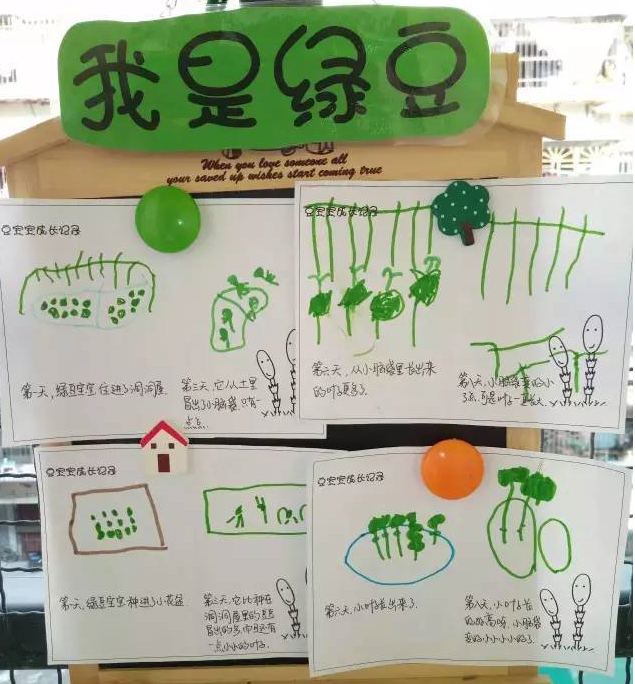 我是绿豆
When you love someone all
your saved up wishes start coming true
豆宝宝成长记录
第一天，绿豆宝宝住进了洞洞屋
第三天，它从土里
冒出了小脑袋，只有一
点点
豆宝宝成长记录
第六天，从小脑袋里长出来
的叶更多了
第八天，小脑袋变的小
豆宝宝成长记录
第一天，绿豆宝宝种进了小花盆
第三天，它比种在
洞洞屋里的豆豆
冒出的多，而且还有
一点小小的叶子
豆宝宝成长记录
第六天，小叶子长出来了
第八天，小叶子长
的好高呀，小脑袋
变的小小小小的了